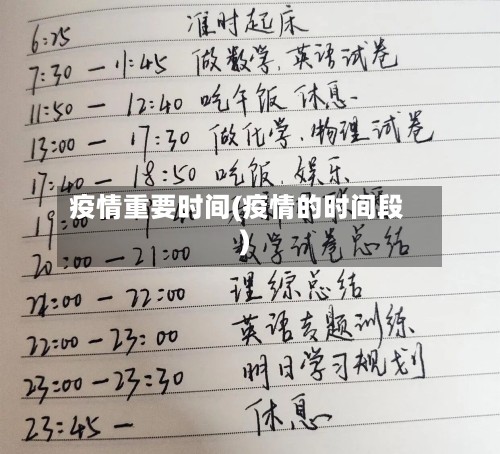 6:25 准时起床
7:30 — 11:45 做数学、英语试卷
11:50 — 12:40 吃午饭 休息
13:00 — 17:30 做化学、物理试卷
17:40 — 18:50 吃饭、娱乐
疫情重要时间(疫情的时间段
)
19:00
20:00 — 21:00 数学试卷总结
21:00 — 22:00 理综总结
22:00 — 23:00 英语专题训练
23:00 — 23:30 明日学习规划
23:45 — 休息